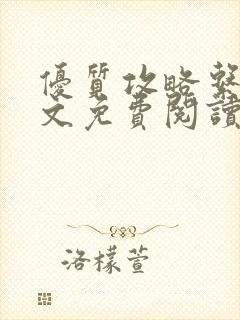 優質攻略繫
文免費閱讀
洛檬萱